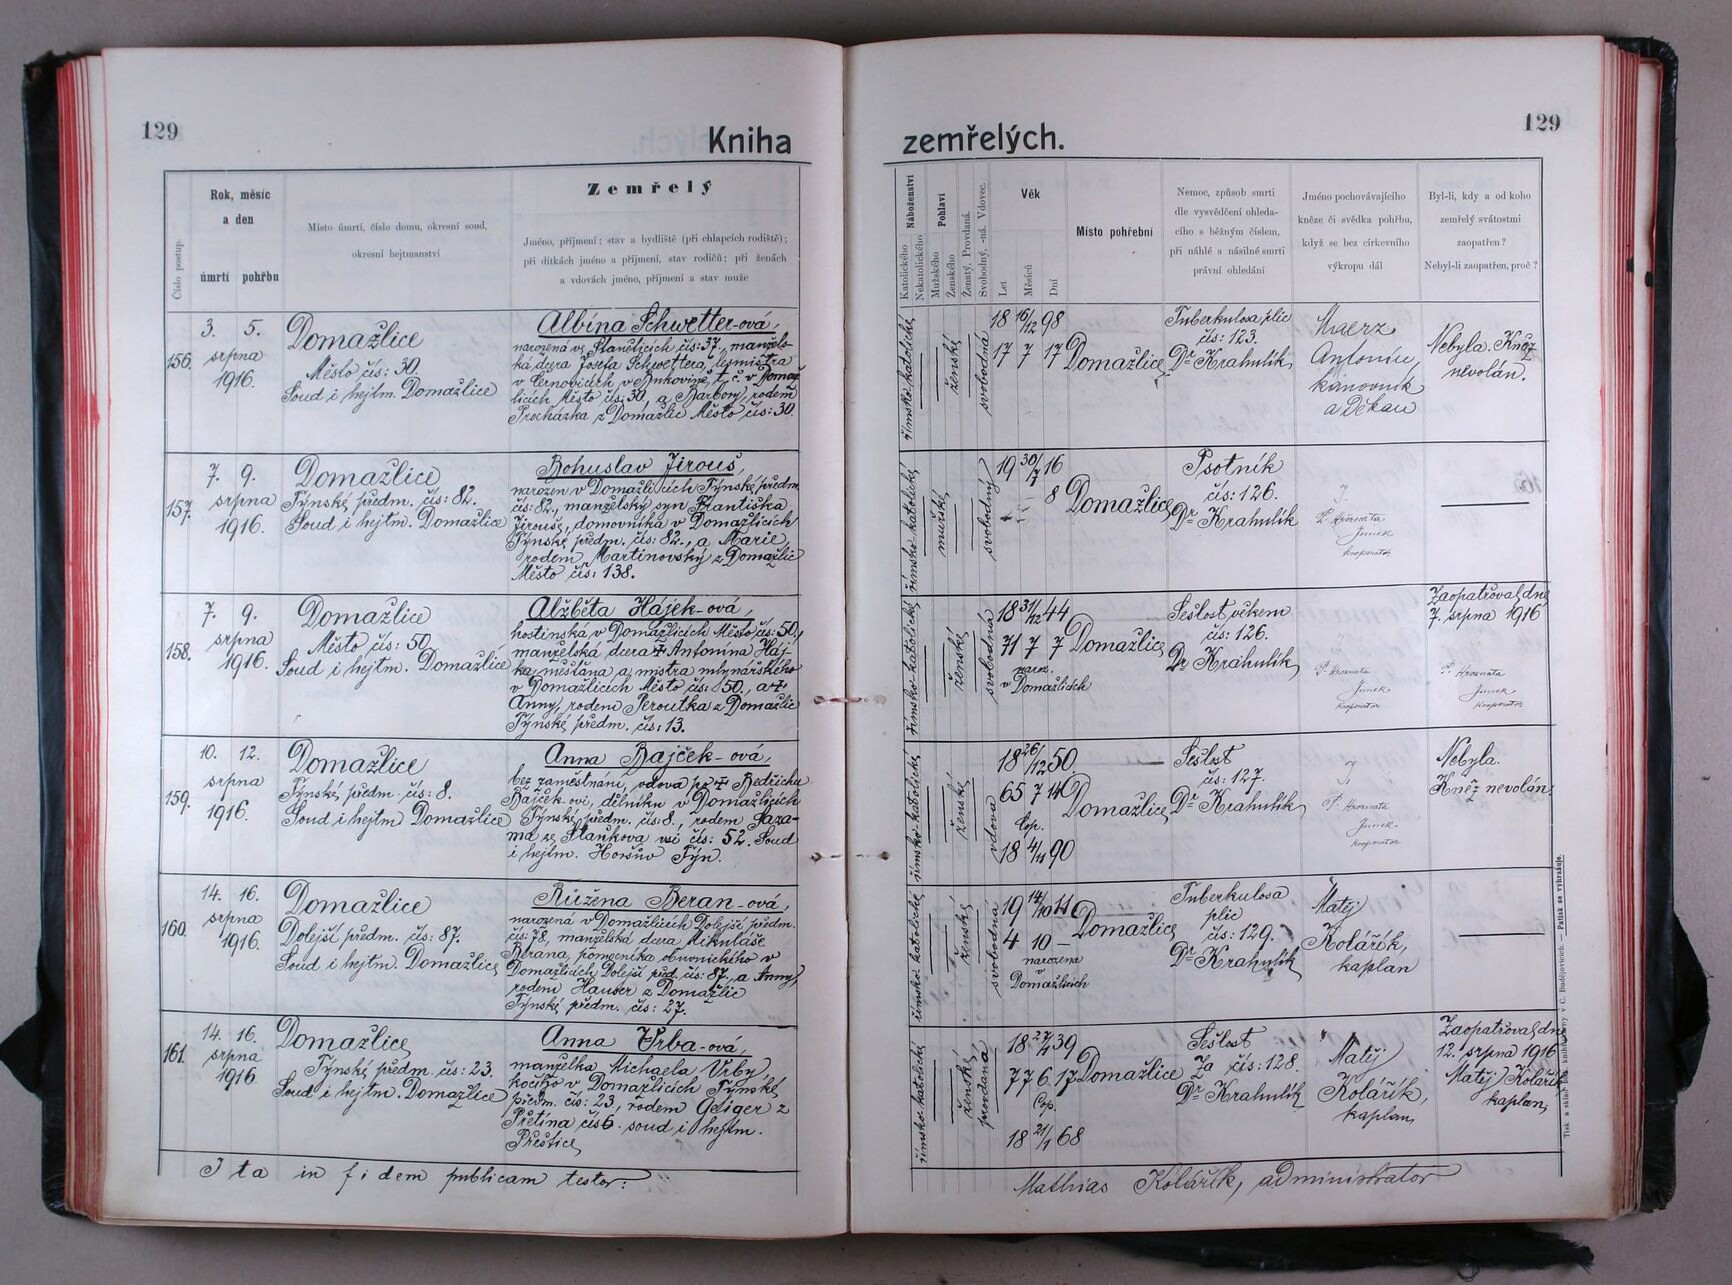 129
Kniha
zemřelých.
129
Číslo postup.
Rok, měsíc
a den
úmrtí pohřbu
Místo úmrtí, číslo domu, okresní soud,
okresní hejtmanství
Zemřelý
Jméno, příjmení; stav a bydliště (při chlapcích rodiště);
při dítkách jméno a příjmení, stav rodičů; při ženách
a vdovách jméno, příjmení a stav muže
Náboženství
Katolického
Nekatolického
Pohlaví
Mužského
Ženského
Ženatý, Provdaná.
Svobodný, -ná. Vdovec.
Věk
Let
Měsíců
Dní
Místo pohřební
Nemoc, způsob smrti
dle vysvědčení ohleda-
cího s běžným číslem,
při náhlé a násilné smrti
právní ohledání
Jméno pochovávajícího
kněze či svědka pohřbu,
když se bez církevního
výkropu dál
Byl-li, kdy a od koho
zemřelý svátostmi
zaopatřen?
Nebyl-li zaopatřen, proč?
156.
3. 5.
srpna
1916.
Domažlice
Město čís: 30.
Soud i hejtm. Domažlice
Albína Schwetter-ová,
narozená ve Staněticích čís: 37., manžels-
ká dcera Josefa Schwettera, lesmistra
v Černovicích v Bukovině, t. č. v Domaž
licích Město čís: 30, a Barbory, rodem
Procházka z Domažlic Město čís: 30.
římsko-katolické
ženské
svobodná
18 16/12 98
17 7 17
Domažlice
Tuberkulosa plic
čís: 123.
Dr Krahulík
Maerz
Antonín,
kanovník
a Děkan
Nebyla. Kněz
nevolán.
157.
7. 9.
srpna
1916.
Domažlice
Týnské předm. čís: 82.
Soud i hejtm. Domažlice
Bohuslav Jirouš,
narozen v Domažlicích Týnské předm.
čís: 82., manželský syn Františka
Jirouše, domovníka v Domažlicích
Týnské předm. čís: 82., a Marie,
rodem Martinovský z Domažlic
Město čís: 138.
římsko-katolické
mužské
svobodný
19 30/7 16
- - 8
Domažlice
Psotník
čís: 126.
Dr Krahulík
P. Hroznata
Junek
kooperator
158.
7. 9.
srpna
1916.
Domažlice
Město čís: 50.
Soud i hejtm. Domažlice
Alžběta Hájek-ová,
hostinská v Domažlicích Město čís: 50,
manželská dcera † Antonína Háj-
ka, měšťana a mistra mlynářského
v Domažlicích Město čís: 50., a †
Anny, rodem Peroutka z Domažlic
Týnské předm. čís: 13.
římsko-katolické
ženské
svobodná
18 31/12 44
71 7 7
naroz.
v Domažlicích
Domažlice
Sešlost věkem
čís: 126.
Dr Krahulík
P. Hroznata
Junek
kooperator
Zaopatřoval dne
7. srpna 1916
P. Hroznata
Junek
kooperator
159.
10. 12.
srpna
1916.
Domažlice
Týnské předm. čís: 8.
Soud i hejtm. Domažlice
Anna Bajček-ová,
bez zaměstnání, vdova po † Bedřichu
Bajček-ovi, dělníku v Domažlicích
Týnské předm. čís: 8., rodem Saza-
ma ze Staňkova vsi čís: 52. Soud
i hejtm. Horšův Týn.
římsko-katolické
ženské
vdova
18 26/12 50
65 7 14
Cop.
18 4/11 90
Domažlice
Sešlost
čís: 127.
Dr Krahulík
P. Hroznata
Junek
kooperator
Nebyla.
Kněz nevolán.
160.
14. 16.
srpna
1916.
Domažlice
Dolejší předm. čís: 87.
Soud i hejtm. Domažlice
Růžena Beran-ová,
narozená v Domažlicích Dolejší předm.
čís: 78, manželská dcera Mikuláše
Berana, pomocníka obuvnického v
Domažlicích Dolejší před. čís: 87., a Anny,
rodem Hauser z Domažlic
Týnské předm. čís: 27.
římsko-katolické
ženské
svobodná
19 14/10 11
4 10 -
narozená
v
Domažlicích
Domažlice
Tuberkulosa
plic
čís: 129.
Dr Krahulík
Matěj
Kolářík,
kaplan
161.
14. 16.
srpna
1916
Domažlice
Týnské předm. čís: 23.
Soud i hejtm. Domažlice
Anna Vrba-ová,
manželka Michaela Vrby,
kočího v Domažlicích Týnské
předm. čís: 23., rodem Gdiger z
Přetína čís 6. soud i hejtm.
Přeštice
římsko-katolické
ženské
provdaná
18 27/1 39
77 6 17
Cop.
18 21/1 68
Domažlice
Sešlost
čís: 128.
Dr Krahulík
Matěj
Kolářík,
kaplan
Zaopatřoval dne
12. srpna 1916
Matěj Kolářík
kaplan
Ita in fidem publicam testor:
Mathias Kolářík, administrator